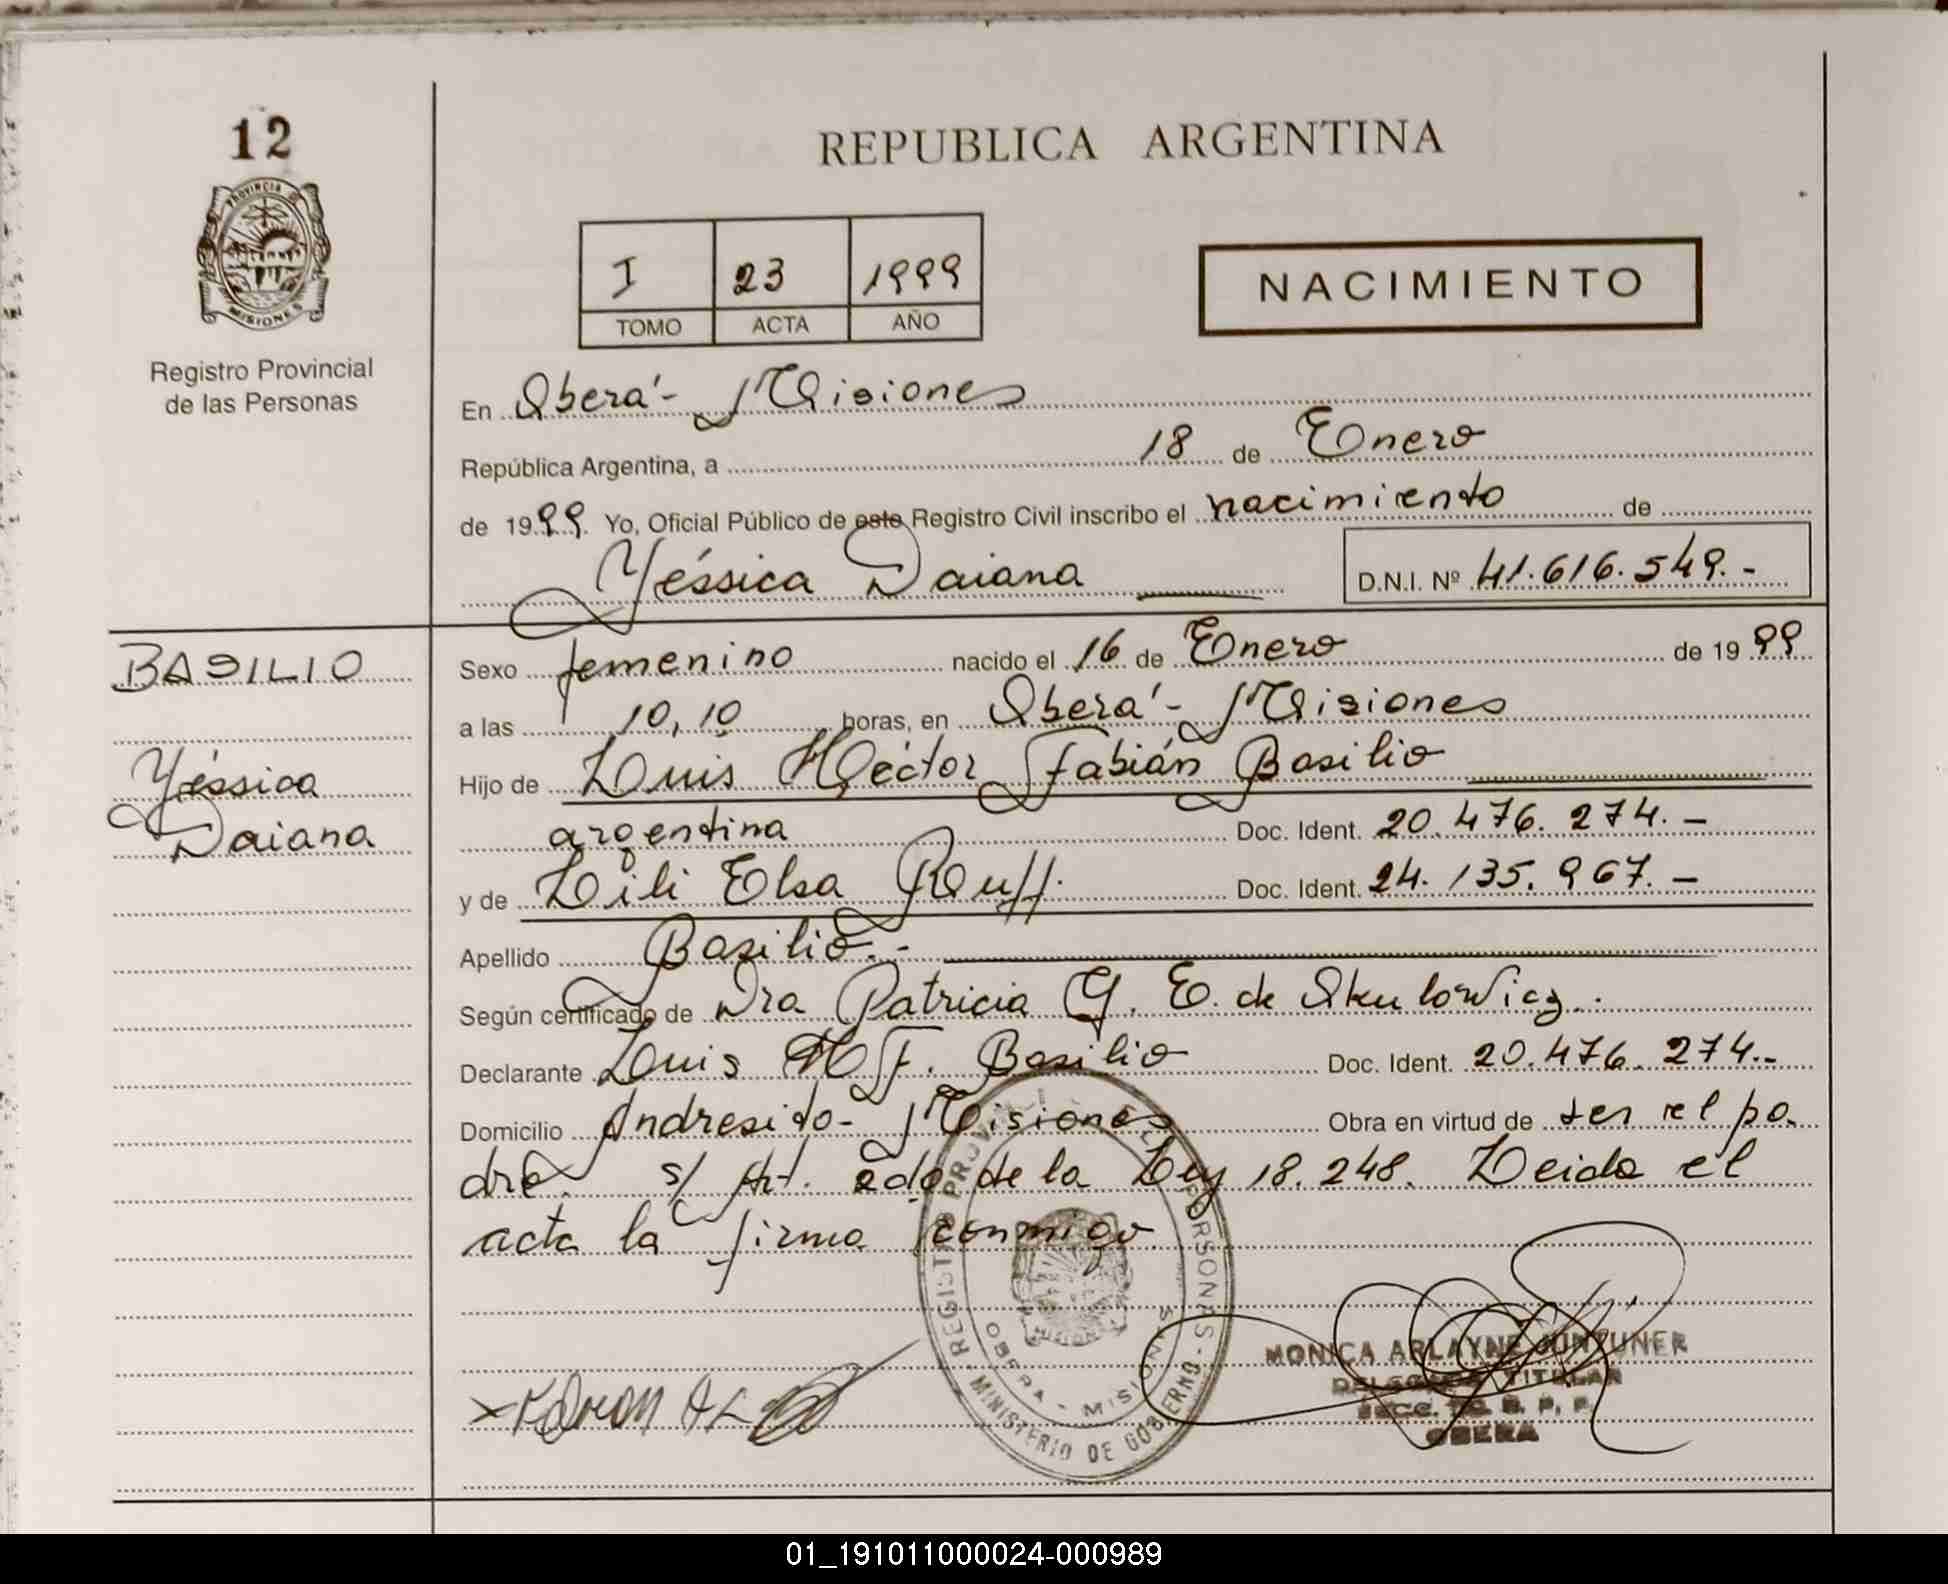 12
PROVINCIA
MISIONES
Registro Provincial
de las Personas
REPUBLICA ARGENTINA
I 23 1999
TOMO ACTA AÑO
NACIMIENTO
En Oberá - Misiones
República Argentina, a 18 de Enero
de 1999. Yo, Oficial Público de este Registro Civil inscribo el nacimiento de
Yéssica Daiana D.N.I. Nº 41.616.549.-
BASILIO
Yéssica
Daiana
Sexo femenino nacido el 16 de Enero de 1999
a las 10,10 horas, en Oberá - Misiones
Hijo de Luis Héctor Fabián Basilio
argentina Doc. Ident. 20.476.274.-
y de Lili Elsa Ruff. Doc. Ident. 24.135.967.-
Apellido Basilio.-
Según certificado de Dra Patricia G. E. de Skulowicz.
Declarante Luis H F. Basilio Doc. Ident. 20.476.274.-
Domicilio Andresito - Misiones Obra en virtud de ser el pa-
dre. s/ Art. 2do de la Ley 18.248. Leida el
acta la firma conmigo
REGISTRO PROVINCIAL DE LAS PERSONAS - MINISTERIO DE GOBIERNO
OBERA - MISIONES
MONICA ARLAYNE JUNTUNER
DELEGADA TITULAR
OBERA
01_191011000024-000989